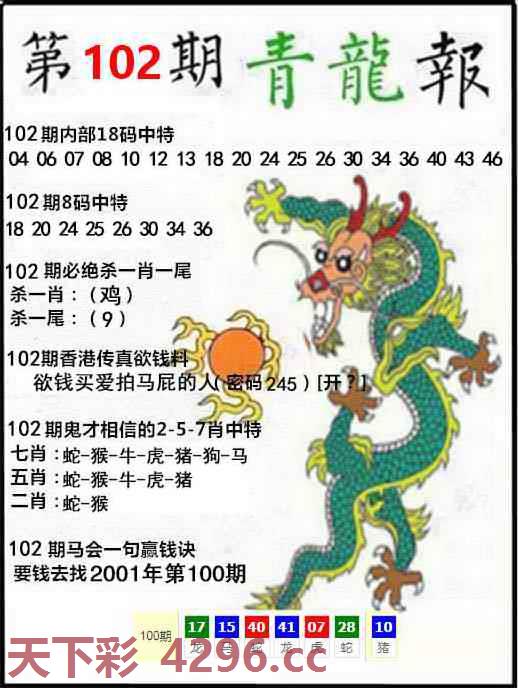 第102期 青龍報
102期内部18码中特
04 06 07 08 10 12 13 18 20 24 25 26 30 34 36 40 43 46
102期8码中特
18 20 24 25 26 30 34 36
102期必绝杀一肖一尾
杀一肖:(鸡)
杀一尾:(9)
102期香港传真欲钱料
欲钱买爱拍马屁的人(密码245)[开?]
102期鬼才相信的2-5-7肖中特
七肖:蛇-猴-牛-虎-猪-狗-马
五肖:蛇-猴-牛-虎-猪
二肖:蛇-猴
102期马会一句赢钱诀
要钱去找2001年第100期
100期 17 15 40 41 07 28 10
龙 蛇 龙 虎 蛇 猪
天下彩 4296.cc